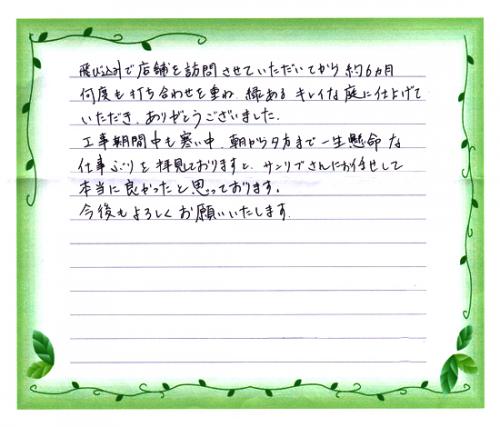 飛び込みで店舗を訪問させていただいてから約6カ月
何度も打ち合わせを重ね 緑ある キレイな庭に仕上げて
いただき、ありがとうございました。
工事期間中も寒い中、朝から夕方まで一生懸命な
仕事ぶりを拝見しておりますと、サンリブさんにお任せして
本当に良かったと思っております。
今後もよろしくお願いいたします。